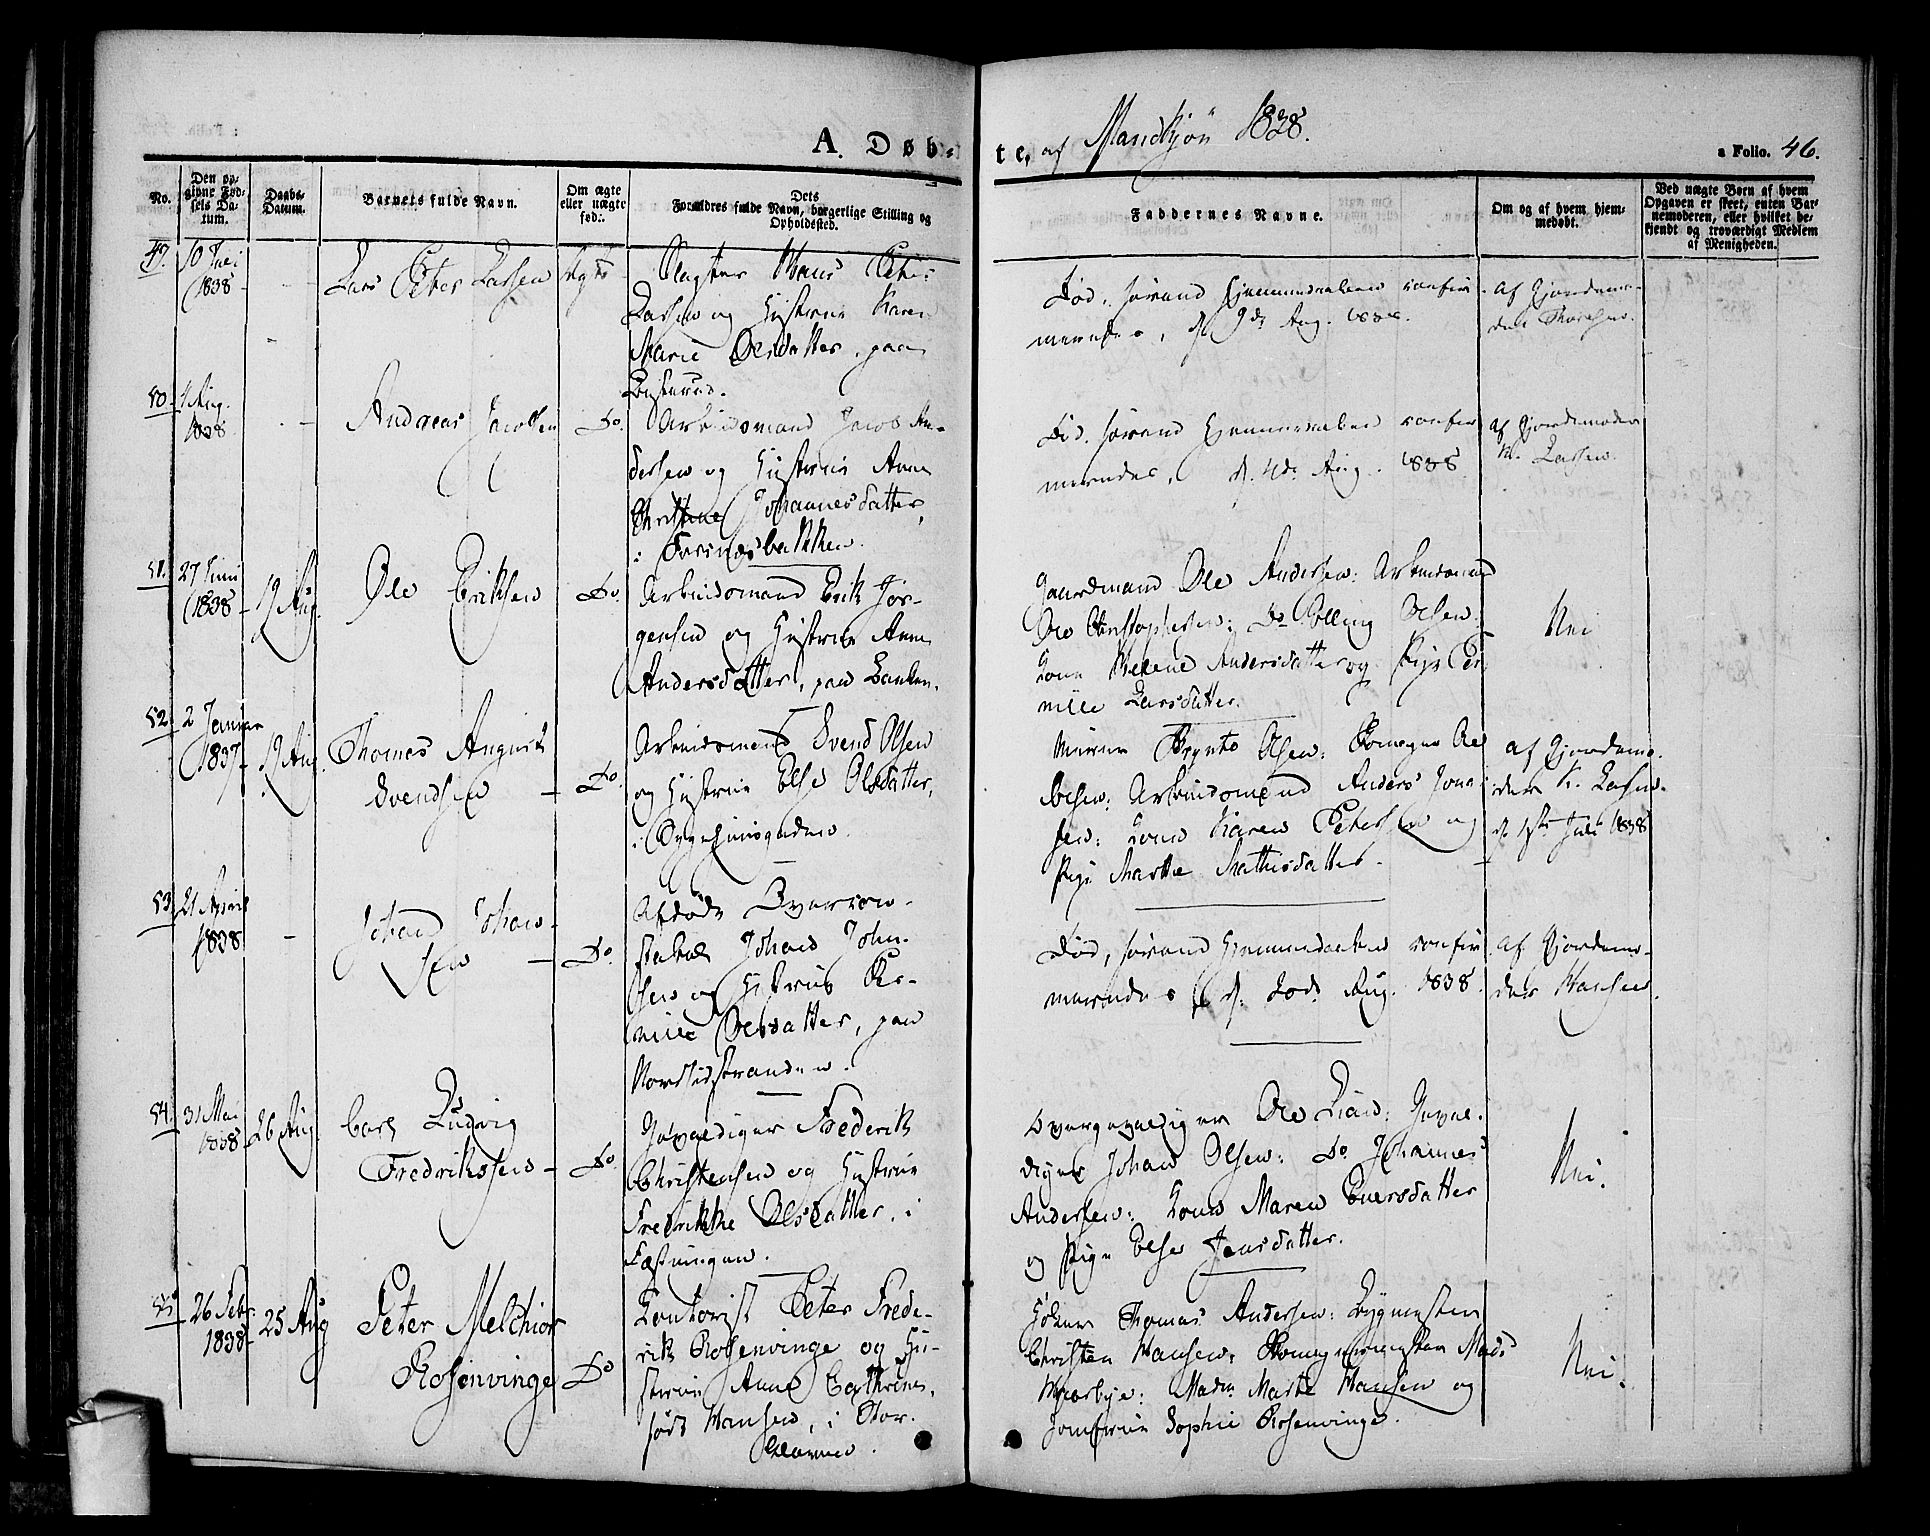 A. Døb-
te, af Mandkjøn 1838.
a Folio. 46.
No.
Den op-
givne Fød-
sels Da-
tum.
Daabs-
Datum.
Barnets fulde Navn.
Om ægte
eller uægte
fød:
Dets
Forældres fulde Navn, borgerlige Stilling og
Opholdssted.
Faddernes Navne.
Om og af hvem hjem-
medøbt.
Ved uægte Børn af hvem
Opgaven er skeet, enten Bar-
nemoderen, eller hvilket be-
kjendt og troværdigt Medlem
af Menigheden.
49.
10 Juli
1838
Lars Peter Larsen
Ægte
Slagter Hans Peter
Larsen og Hustrue Karen
Marie Olsdatter, paa
Død, førend Hjemmedaaben confir
meredes, d. 9de Aug. 1838.
af Gjordemo-
der Thorsen.
50.
4 Aug.
1838
Andreas Jacobsen
Do.
Arbeidsmand Jacob An-
dersen og Hustrue Anne
Christine Johannesdatter,
i Forsnæsbakken.
Død, førend Hjemmedaaben confir
meredes, d. 4de Aug. 1838
af Gjordemoder
K. Larsen.
51.
27 Juni
1838
19 Aug.
Ole Eriksen
Do.
Arbeidsmand Erik Jør-
gensen og Hustrue Anne
Andersdatter, paa Banken.
Gaardmand Ole Andersen: Arbeidsmand
Ole Christophersen: Do Rolling Olsen:
Kone Helene Andersdatter og Pige Per
nille Larsdatter.
Nei
52.
2 Januar
1837
19 Aug.
Thomas August
Svendsen
Do.
Arbeidsmand Svend Olsen
og Hustrue Else Olsdatter,
i Sygehuusgaden.
Murer Trynte Olsen: Komager Ole
Olsen: Arbeidsmand Anders Jona
sen: Kone Karen Petersen og
Pige Marthe Mathisdatter.
af Gjordemo-
der K. Larsen
d. 1ste Juli 1838
53.
21 April
1838
Johan Johan-
sen
Do.
Afdøde Overcon-
stabel Johan Johan-
sen og Hustrue Per-
nille Olsdatter, paa
Nordsidstranden.
Død, førend Hjemmedaaben confir
meredes d. 20de Aug. 1838.
af Gjordemo-
der Hansen.
54.
31 Mai
1838
26 Aug.
Carl Ludvig
Fredriksen
Do.
Gevaldiger Frederik
Christensen og Hustrue
Fredrikke Olsdatter, i
Fæstningen.
Overgevaldiger Ole Lian: Geval-
diger Johan Olsen: Do Johannes
Andersen: Kone Maren Eversdatter
og Pige Else Jensdatter.
Nei.
55.
26 Febr
1838
25 Aug
Peter Melchior
Rosenvinge
Do
Contorist Peter Frede-
rik Rosenvinge og Hu-
strue Anne Cathrine,
født Hansen, i Stor-
Høker Thomas Andersen: Bygmester
Christen Hansen: Komagermester Mads
Maarbye: Madm Marte Hansen og
Jomfrue Sophie Rosenvinge.
Nei.